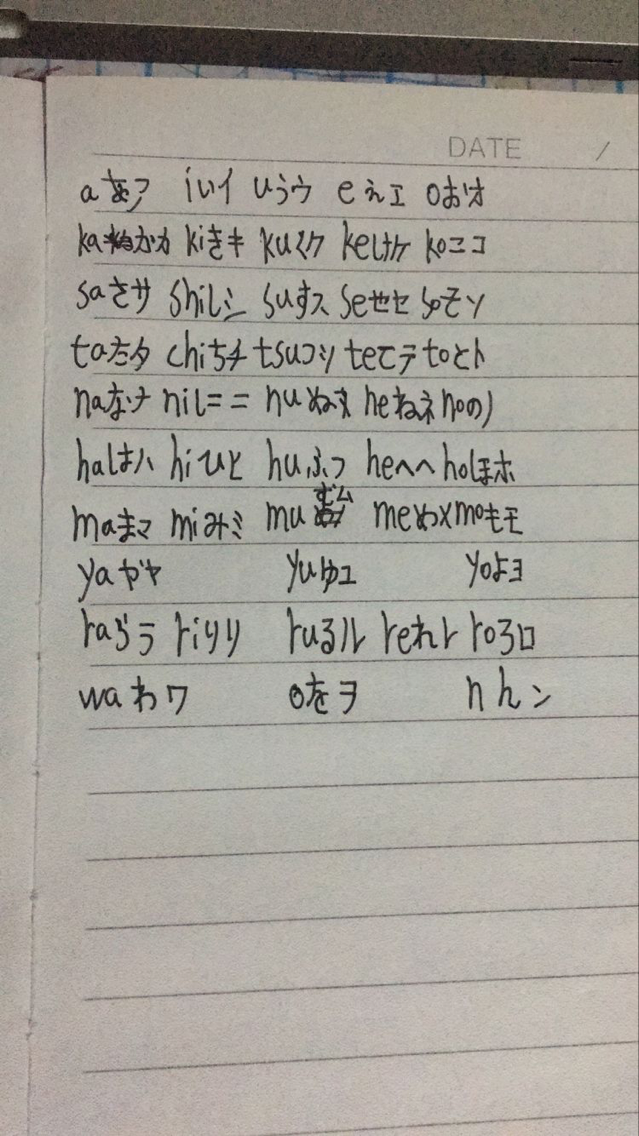 DATE /
a あア iいイ uうウ eえエ oおオ
ka かカ kiきキ kuくク keけケ koこコ
saさサ shiしシ suすス seせセ soそソ
taたタ chiちチ tsuつツ teてテ toとト
naなナ niにニ nuぬヌ neねネ noのノ
haはハ hiひヒ huふフ heへヘ hoほホ
maまマ miみミ mu むム meめメ moもモ
yaやヤ yuゆユ yoよヨ
raらラ riりリ ruるル reれレ roろロ
waわワ oをヲ nんン